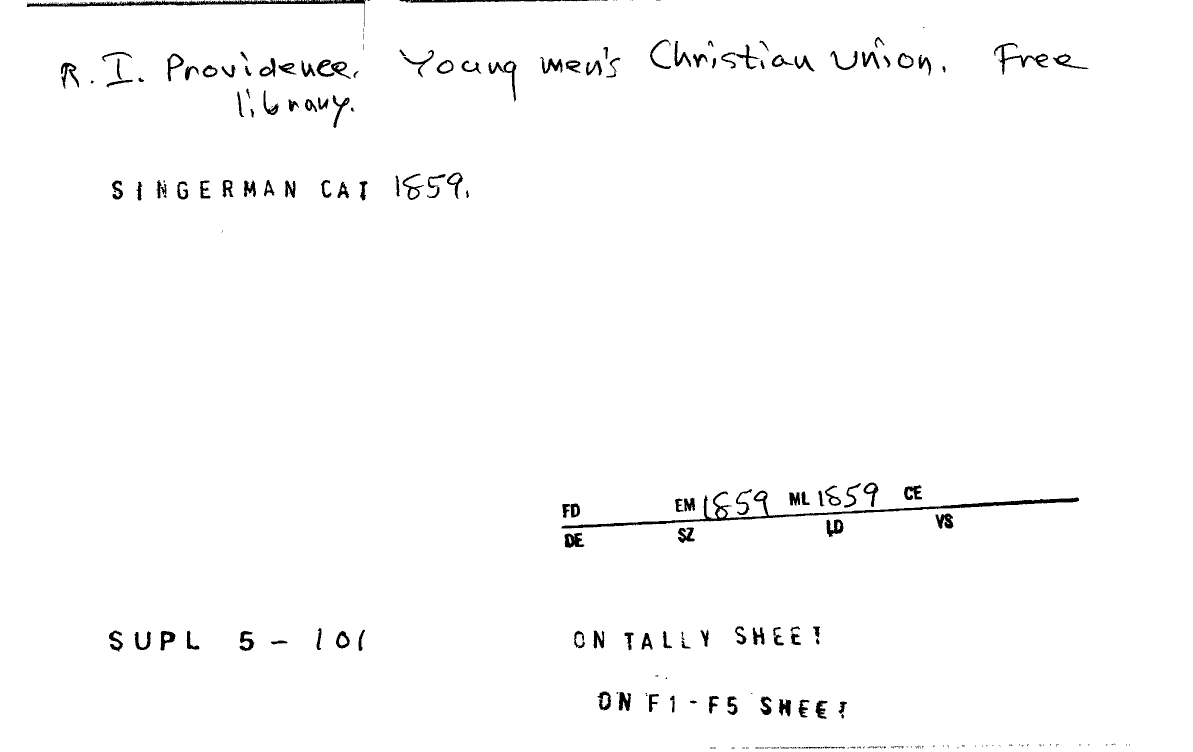 R. I. Providence. Young men's Christian Union. Free
library.
SINGERMAN CAT 1859.
FD EM 1859 ML 1859 CE
DE SZ LD VS
SUPL 5 - 101 ON TALLY SHEET
ON F1 - F5 SHEET